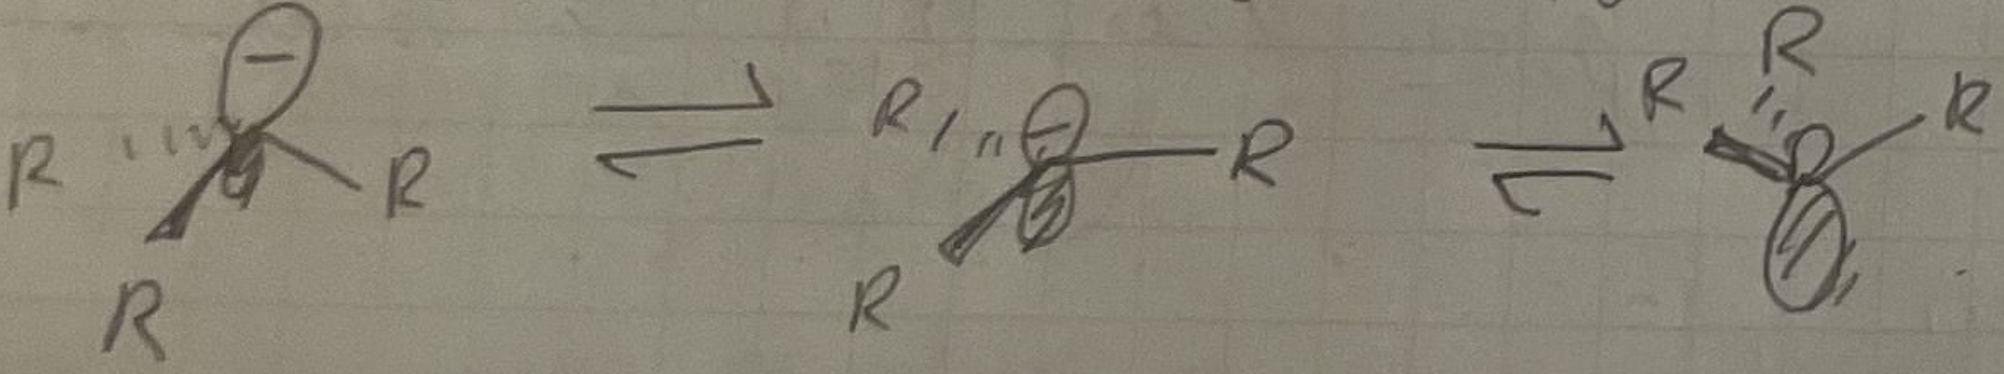 R R R
R R R
R R R